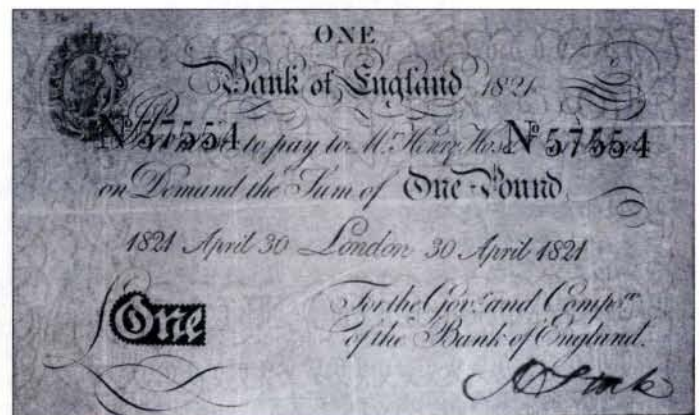 ONE
Bank of England 1821
Nº 57554 to pay to Mr. Henry Hase Nº 57554
on Demand the Sum of One Pound
1821 April 30 London 30 April 1821
One
For the Govr. and Compa.
of the Bank of England.